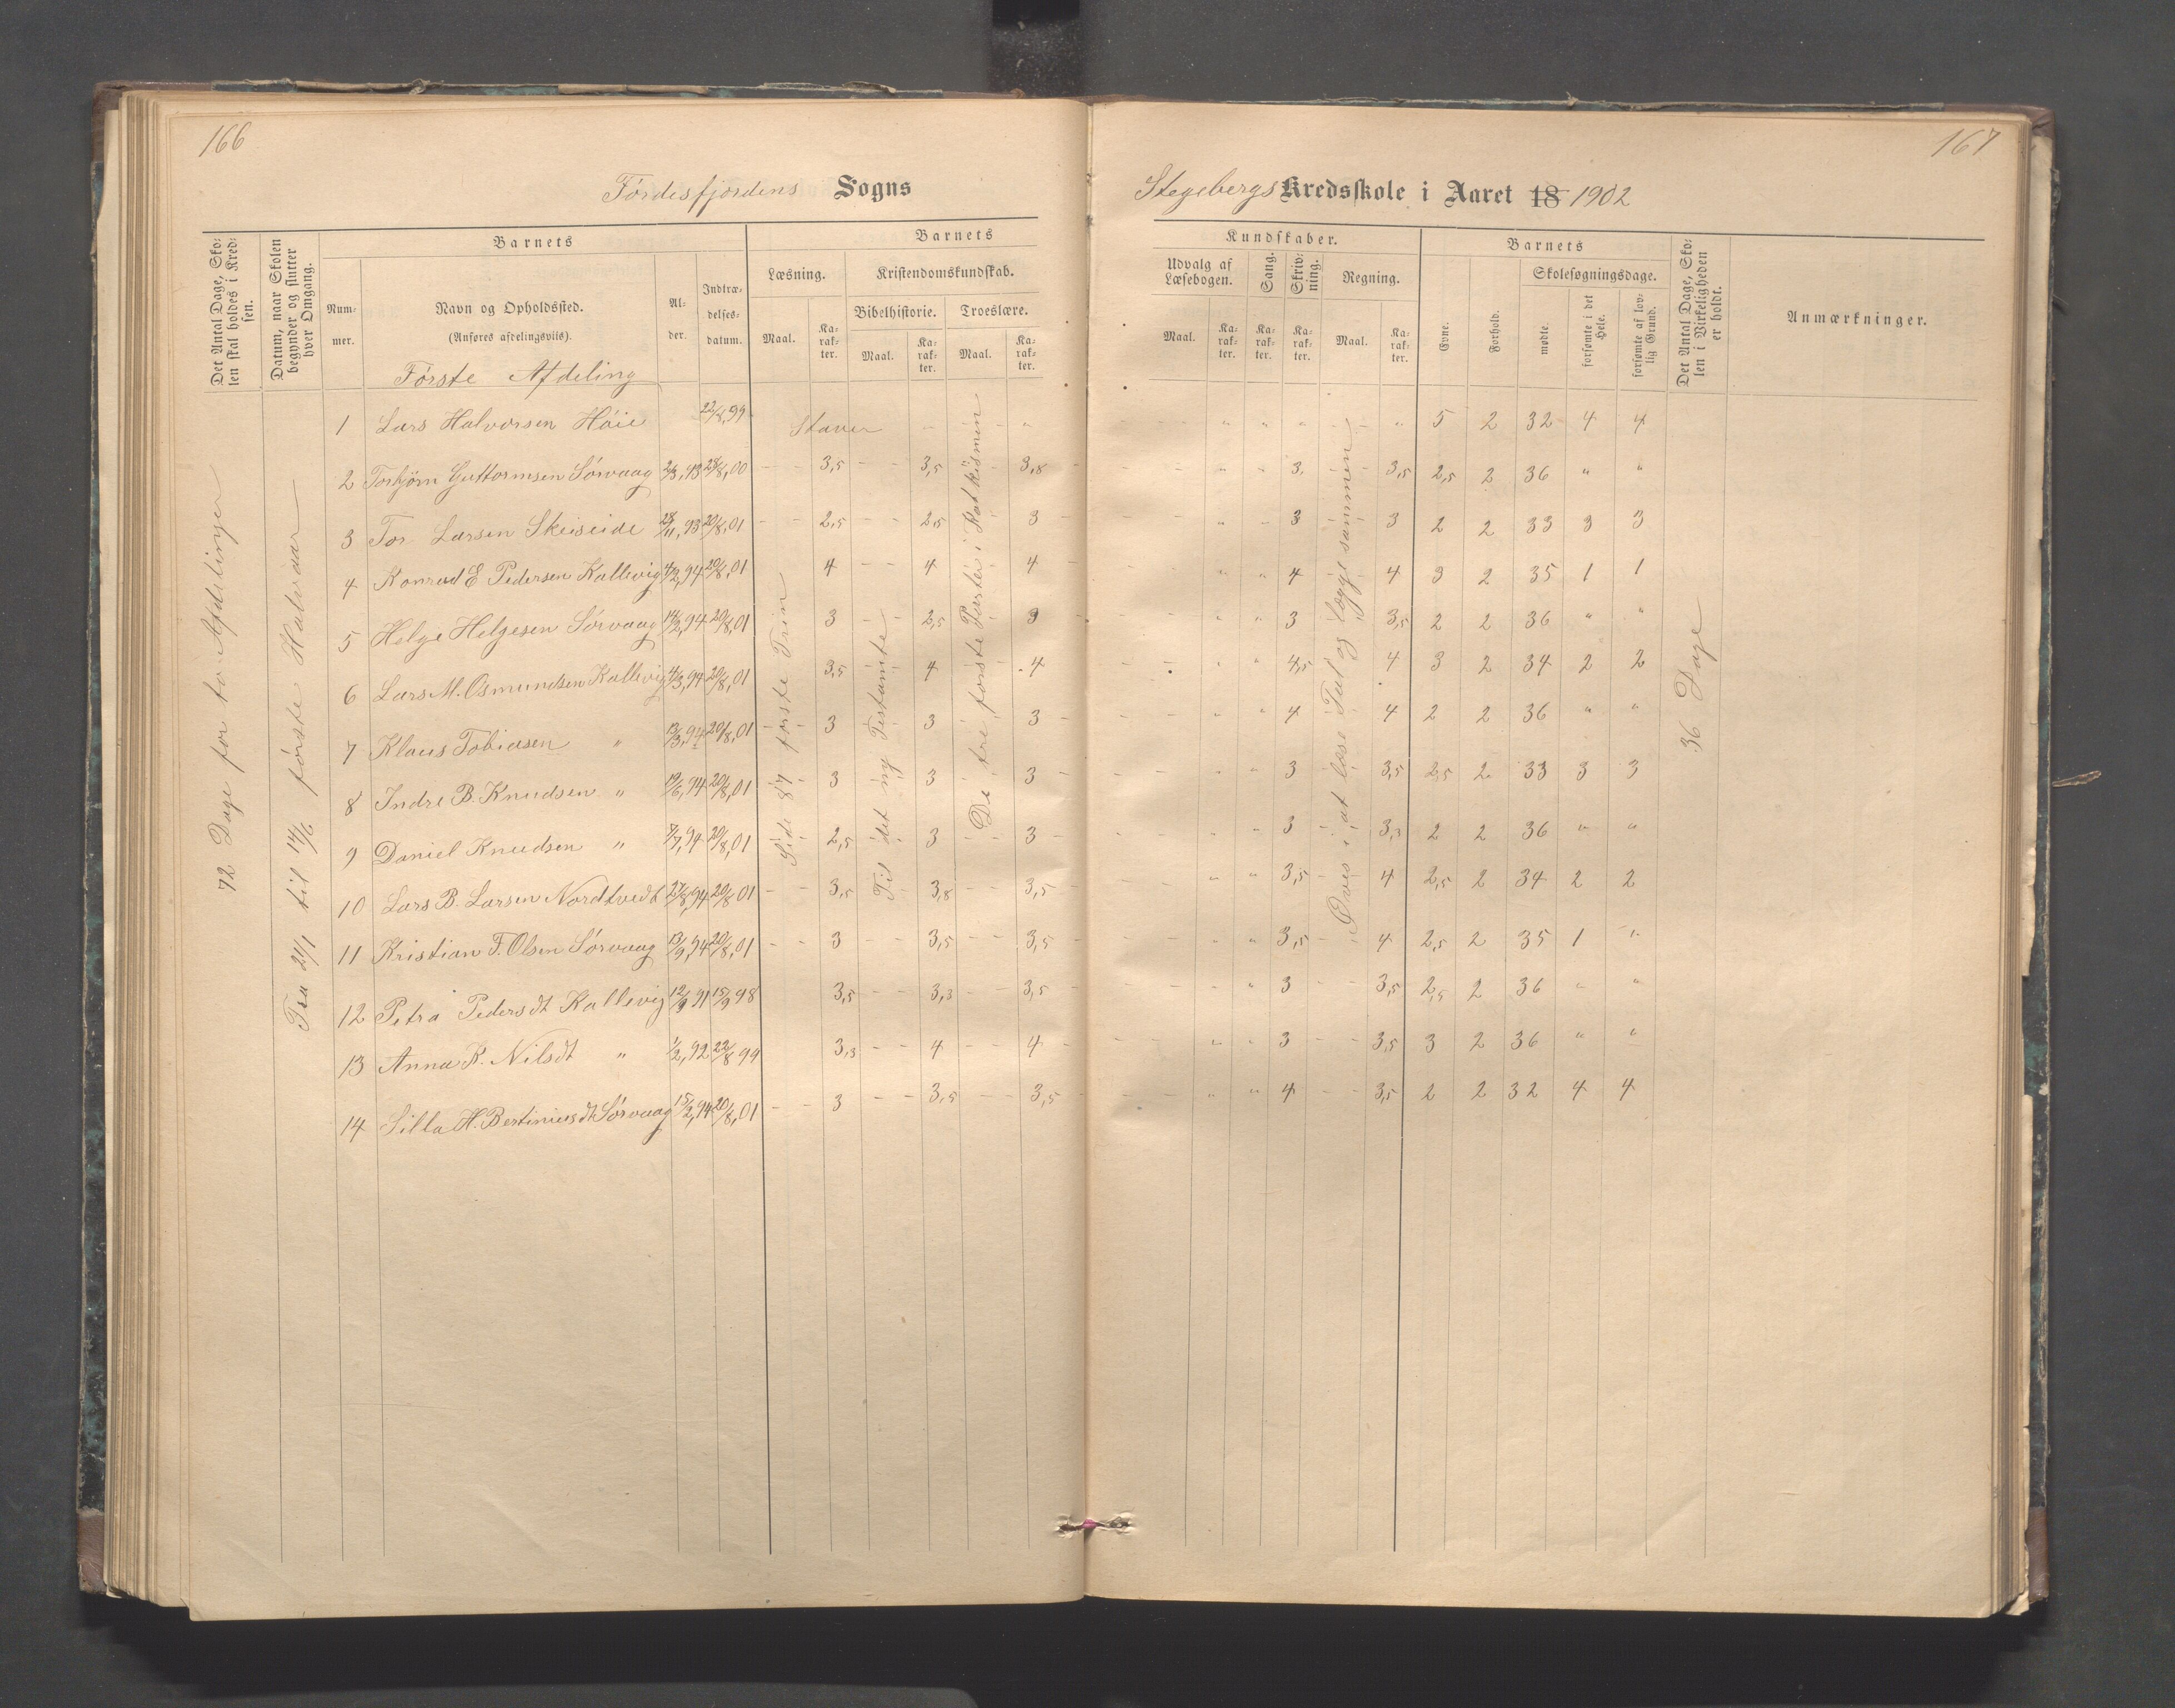 166
167
Førdesfjordens Sogns
Stegebergs Kredsskole i Aaret 18 1902
Det Antal Dage, Skolen skal holdes i Kredsen.
Datum, naar Skolen begynder og slutter hver Omgang.
Barnets
Nummer.
Navn og Opholdssted.
(Anføres afdelingsvils).
Alder.
Indtrædelsesdatum.
Barnets
Læsning.
Kristendomskundskab.
Bibelhistorie.
Troeslære.
Maal. Karakter. Maal. Karakter. Maal. Karakter.
Kundskaber.
Udvalg af Læsebogen.
Sang.
Skrivning.
Regning.
Maal. Karakter. Karakter. Karakter. Maal. Karakter.
Barnets
Evne.
Forhold.
Skolesøgningsdage.
mødte.
forsømte i det Hele.
forsømte af lovlig Grund.
Det Antal Dage, Skolen i Virkeligheden er holdt.
Anmærkninger.
Første Afdeling
72 Dage for to Afdelinger
Fra 21/1 til 14/6 første Halvaar
Side 87 første Trin
Til det ny Testamente
De tre første Parter i Katekismen
Øves i at læse Tal og lægge sammen
36 Dage
1 Lars Halvorsen Høie 22/8,99 Staver - - " - - " " " - - " 5 2 32 4 4
2 Torbjørn Guttormsen Sørvaag 2/3,93 28/8,00 - - 3,5 - - 3,5 3,8 - - " " 3. 3,5 2,5 2 36 " "
3 Tor Larsen Skeiseide 28/11,93 20/8,01 - - 2,5 - - 2,5 3 - - " " 3 3 2 2 33 3 3
4 Konrad E Pedersen Kallevig 4/2,94 20/8,01 4 - - 4 4 - - " " 4 4 3 2 35 1 1
5 Helge Helgesen Sørvaag 14/2,94 20/8,01 3 - - 2,5 3 - - " " 3 3,5 2 2 36 " "
6 Lars M. Osmundsen Kallevig 4/3,94 20/8,01 3,5 4 4 - - " " 4,5 4 3 2 34 2 2
7 Klaus Tobiasen " 13/3,94 20/8,01 - - 3 3 3 - - " " 4 4 2 2 36 " "
8 Indre B. Knudsen " 19/6,94 20/8,01 3 3 3 - - " " 3 3,5 2,5 2 33 3 3
9 Daniel Knudsen " 8/7,94 20/8,01 2,5 3 3 - - " " 3 3,3 2 2 36 " "
10 Lars B. Larsen Nordtvedt 27/8,94 20/8 01 - - 3,5 3,8 - - 3,5 - - " " 3,5 4 2,5 2 34 2 2
11 Kristian F. Olsen Sørvaag 13/9,94 20/8,01 - - 3 - - 3,5 - - 3,5 - - " " 3,5 4 2,5 2 35 1 "
12 Petra Pedersdt Kallevig 12/9 91 15/9 98 3,5 - - 3,3 - - 3,5 - - " 3 - - 3,5 2,5 2 36 " "
13 Anna K. Nilsdt " 1/2,92 22/8 99 3,3 - - 4 - - 4 - - " " 3 - - 3,5 3 2 36 " "
14 Silla H. Bertiniusdt Sørvaag 15/2,94 20/8,01 - - 3 - - 3,5 - - 3,5 - - " " 4 - - 3,5 2 2 32 4 4